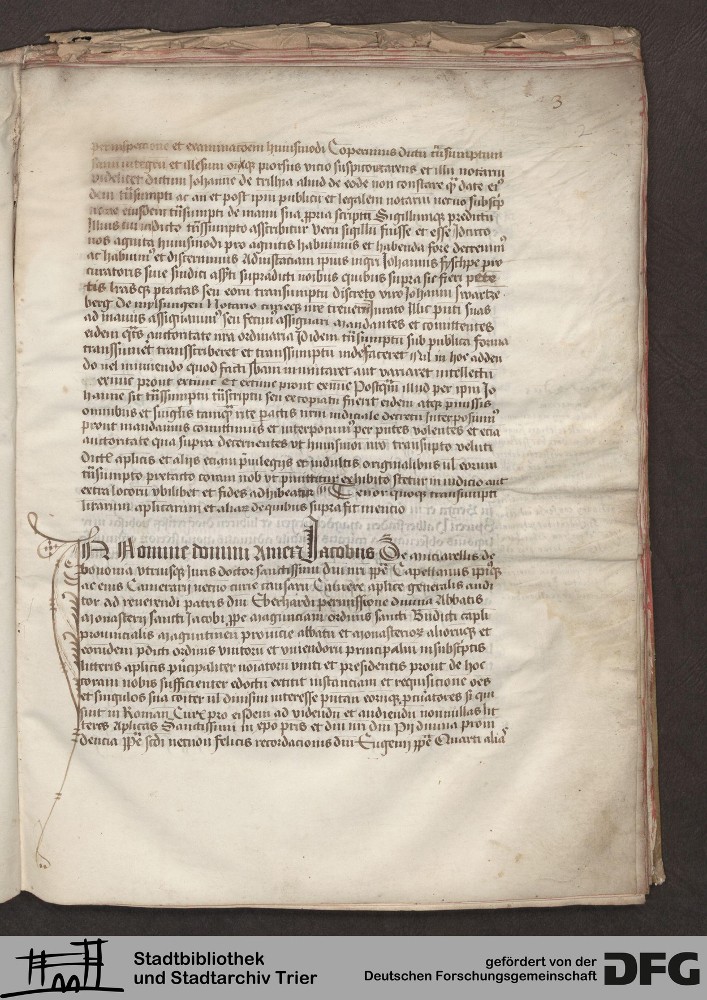 3
2
et examinacoem huiusmodi Coperimus dictu trsumptum
sanu integru et illesum oiq prorsus vicio suspicoe carens et illu notariu
videlicet dictum Johanne de trilhia aliud de eode non constare q date ei
dem trsumpti ac an et post ipm publicu et legalem notariu necno subscp
eiusdem trsumpti de manu sua ppria scripti Sigillumq predictu
illius in dicto trssumpto asscribitur veru sigillu fuisse et esse Idcirco
nos agnita huiusmodi pro agnitis habuimus et habenda fore decreuim
ac habuim et discernimus Ad instanciam ipius mgri Johannis fyschpe pro
curatoris siue sindici assti supradicti noibus quibus supra sic fieri
tis lrasq ptactas seu eoru transumptu discreto viro Johanni swartze
berg De mylsungen Notario cureq nre treueren iurato illic pnti suas
ad manus assignanim seu fecim assignari mandantes et comittentes
eidem qtus auctoritate nra ordinaria Ididem trsumptu sub publica forma
transsumet transscriberet et transsumptu inde faceret Nil in hoc adden
do uel minuendo quod facti sbam immutaret aut variaret intellectu
et extunc prout extunc Postqm illud per ipm Jo
hanne sic trssumptu trscriptu seu excopiatu fuerit eidem atq pmissis
omnibus et singlis tamq rite pactis nrm iudiciale decretu interposuim
prout mandamus comittimus et interponim per pntes volentes et ecia
auctoritate qua supra decernentes vt huiusmoi nro transupto veluti
dictis aplicis et aliis eciam priuilegijs et indultis originalibus ul eorum
trsumpto pretacto coram nob vt pmittitur exhibito stetur in iudicio aut
extra locoru vbilibet et fides adhibeatur Tenor quoq transumpti
lrarum aplicarum et aliar de quibus supra fit mencio
IN Nomine domini Amen Jacobus De muciarellis de
bononia vtriusq Iuris doctor sanctissimi dni nri ppe Capellanus ipiusq
ac eius Camerarij necno curie causaru Camere aplice generalis audi
tor ad reuerendi patris dni Eberhardi permissione diuina Abbatis
Monasterij sancti Iacobi ppe magunciam ordinis sancti Bndicti capli
prouincialis maguntinen prouincie abbatu et monasterior alioruq et
eorundem pdicti ordinis vnitoru et vniendoru principaliu in subscptis
litteris aplicis principaliter noiatoru vniti et presidentis prout de hoc
coram nobis sufficienter edoctu extitit instanciam et requisitione oes
et singulos sua coiter ul diuisim interesse putan eorumq pcuratores si qui
sint in Roman Cur pro eisdem ad videndu et audiendu nonnullas lit
teras Aplicas Sanctissimi in xpo pris et dni nri dni Pij diuina proui
dencia ppe scdi necnon felicis recordacionis dni Eugenij ppe Quarti alia
Stadtbibliothek
und Stadtarchiv Trier
gefördert von der
Deutschen Forschungsgemeinschaft
DFG